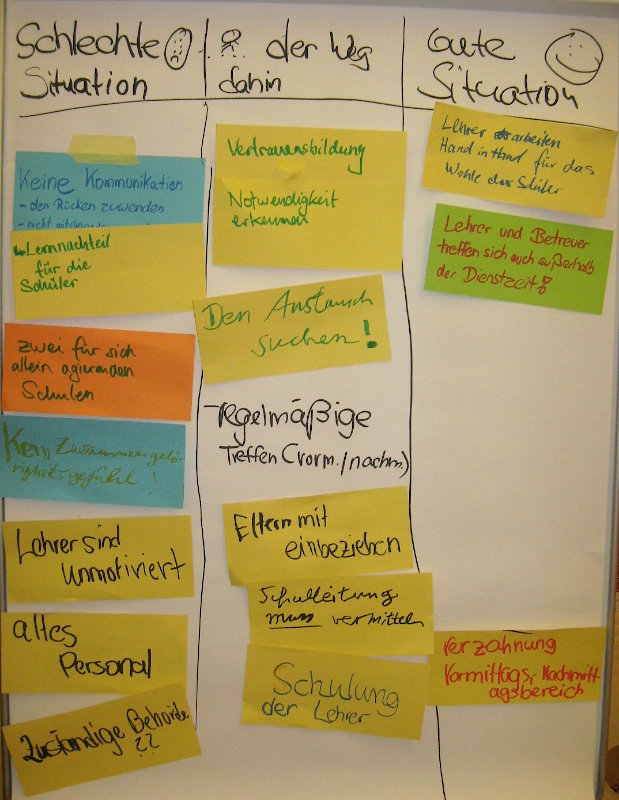 Schlechte
Situation
der Weg
dahin
Gute
Situation
Keine Kommunikation
- den Rücken zuwenden
- nicht
Lernnachteil
für die
Schüler
zwei für sich
allein agierenden
Schulen
Kein Zusammengehö-
rigkeitsgefühl!
Lehrer sind
unmotiviert
altes
Personal
Zuständige Behörde
??
Vertrauensbildung
Notwendigkeit
erkennen
Den Austausch
suchen!
regelmäßige
Treffen (vorm./nachm.)
Eltern mit
einbeziehen
Schulleitung
muss vermitteln
Schulung
der Lehrer
Lehrer arbeiten
Hand in Hand für das
Wohle der Schüler
Lehrer und Betreuer
treffen sich auch außerhalb
der Dienstzeit!
Verzahnung
Vormittags-, Nachmitt-
agsbereich